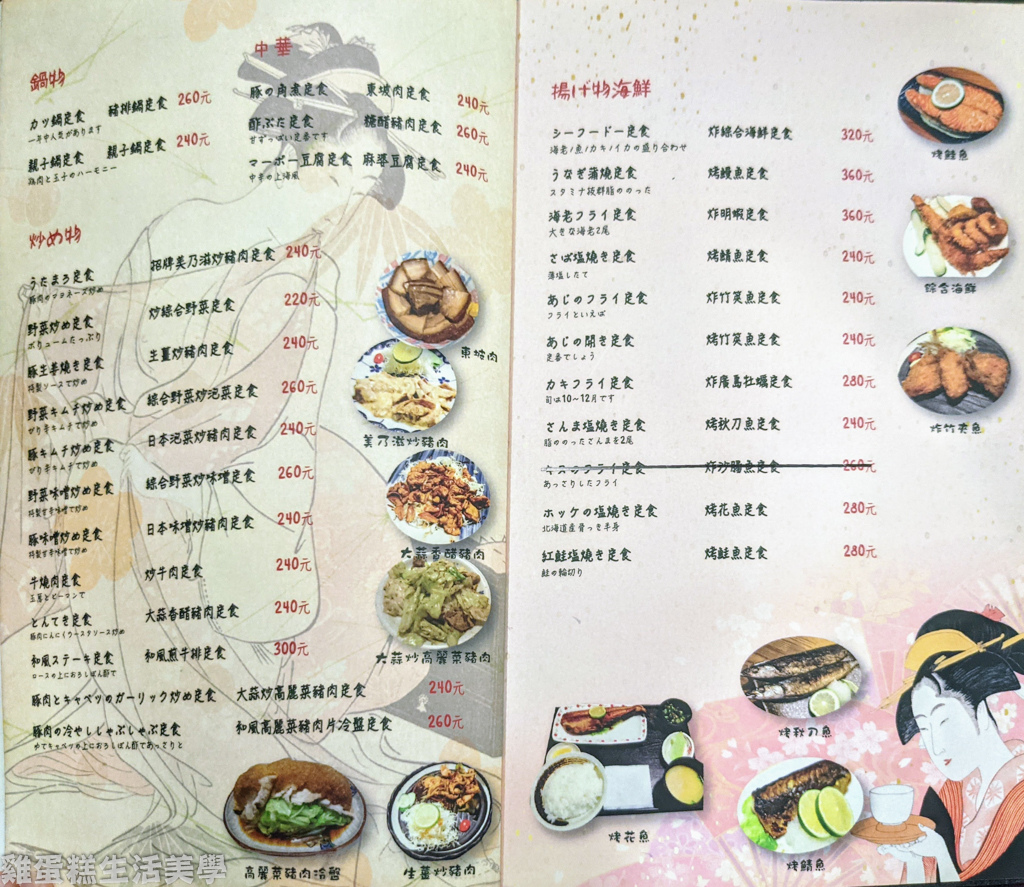 鍋物
カツ鍋定食 豬排鍋定食 260元
一年中人気があります
親子鍋定食 親子鍋定食 240元
鶏肉と玉子のハーモニー
中華
豚の角煮定食 東坡肉定食 240元
酢ぶた定食 糖醋豬肉定食 260元
甘ずっぱい定番です
マーボー豆腐定食 麻婆豆腐定食 240元
中辛の上海風
炒め物
うたまろ定食 招牌美乃滋炒豬肉定食 240元
豚肉のマヨネーズ炒め
野菜炒め定食 炒綜合野菜定食 220元
ボリュームたっぷり
豚生姜焼き定食 生薑炒豬肉定食 240元
特製ソースで炒め
野菜キムチ炒め定食 綜合野菜炒泡菜定食 260元
ぴり辛キムチで炒め
豚キムチ炒め定食 日本泡菜炒豬肉定食 240元
ぴり辛キムチで炒め
野菜味噌炒め定食 綜合野菜炒味噌定食 260元
特製甘辛味噌で炒め
豚味噌炒め定食 日本味噌炒豬肉定食 240元
特製甘辛味噌で炒め
牛焼肉定食 炒牛肉定食 240元
玉葱とピーマンで
とんてき定食 大蒜香醋豬肉定食 240元
豚肉にんにくウースタソース炒め
和風ステーキ定食 和風煎牛排定食 300元
ロースの上におろしぽん酢で
豚肉とキャベツのガーリック炒め定食 大蒜炒高麗菜豬肉定食 240元
豚肉の冷やししゃぶしゃぶ定食 和風高麗菜豬肉片冷盤定食 260元
ゆでキャベツの上におろしぽん酢であっさりと
東坡肉
美乃滋炒豬肉
大蒜香醋豬肉
大蒜炒高麗菜豬肉
高麗菜豬肉冷盤
生薑炒豬肉
揚げ物海鮮
シーフードー定食 炸綜合海鮮定食 320元
海老/魚/カキ/イカの盛り合わせ
うなぎ蒲焼定食 烤鰻魚定食 360元
スタミナ抜群脂ののった
海老フライ定食 炸明蝦定食 360元
大きな海老2尾
さば塩焼き定食 烤鯖魚定食 240元
薄塩したて
あじのフライ定食 炸竹筴魚定食 240元
フライといえば
あじの開き定食 烤竹筴魚定食 240元
定番でしょう
カキフライ定食 炸廣島牡蠣定食 280元
旬は10~12月です
さんま塩焼き定食 烤秋刀魚定食 240元
脂ののったさんまを2尾
キスのフライ定食 炸沙腸魚定食 260元
あっさりしたフライ
ホッケの塩焼き定食 烤花魚定食 280元
北海道産骨っき半身
紅鮭塩焼き定食 烤鮭魚定食 280元
鮭の輪切り
烤鮭魚
綜合海鮮
炸竹夾魚
烤秋刀魚
烤花魚
烤鯖魚
雞蛋糕生活美學